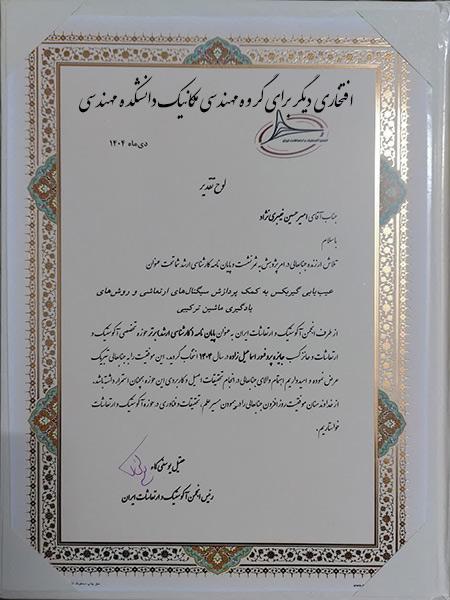 افتخاری دیگر برای گروه مهندسی مکانیک دانشکده مهندسی
دی‌ماه ۱۴۰۴
لوح تقدیر
جناب آقای امیرحسین
با سلام
تلاش ارزنده جنابعالی در امر پژوهش به ثمر نشست و پایان نامه کارشناسی ارشد شما تحت عنوان
عیب‌یابی گیربکس به کمک پردازش سیگنال‌های ارتعاشی و روش‌های
یادگیری ماشین ترکیبی
از طرف انجمن آکوستیک و ارتعاشات ایران به عنوان پایان نامه (کارشناسی ارشد) برتر حوزه تخصصی آکوستیک و
ارتعاشات و حائز کسب جایزه پروفسور اسماعیل زاده در سال ۱۴۰۴ انتخاب گردید. این موفقیت را به جنابعالی تبریک
عرض نموده و امیدواریم اهتمام والای جنابعالی در انجام تحقیقات اصیل و کاربردی این حوزه همچنان استمرار داشته باشد.
از خداوند منان موفقیت روز افزون جنابعالی را در پیمودن مسیر علم، تحقیقات و فناوری در حوزه آکوستیک و ارتعاشات
خواستاریم.
عقیل یوسفی کما
رئیس انجمن آکوستیک و ارتعاشات ایران